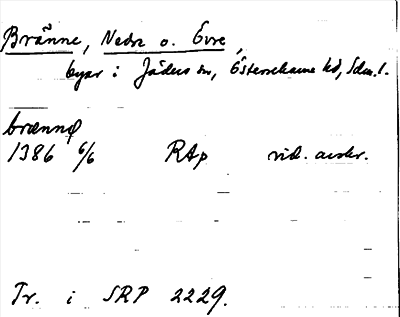 Bränne, Nedre o. Övre,
byar i Jäders sn, Österrekarne hd, Sdm.l.
brænnø
1386 6/6 RAp vid. avskr.
Tr. i SRP 2229.